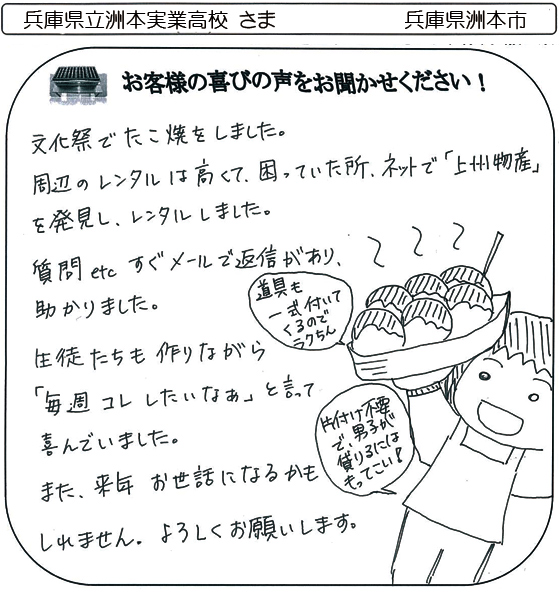 兵庫県立洲本実業高校 さま
兵庫県洲本市
お客様の喜びの声をお聞かせください！
文化祭で たこ焼をしました。
周辺のレンタルは高くて、困っていた所、ネットで「上州物産」
を発見し、レンタルしました。
質問 etc すぐメールで返信があり、
助かりました。
生徒たちも 作りながら
「毎週 コレ したいなぁ」と言って
喜んでいました。
また、来年 お世話になるかも
しれません。よろしくお願いします。
道具も
一式付いて
くるので
ラクちん
片付け不要
で、男子が
借りるには
もってこい！